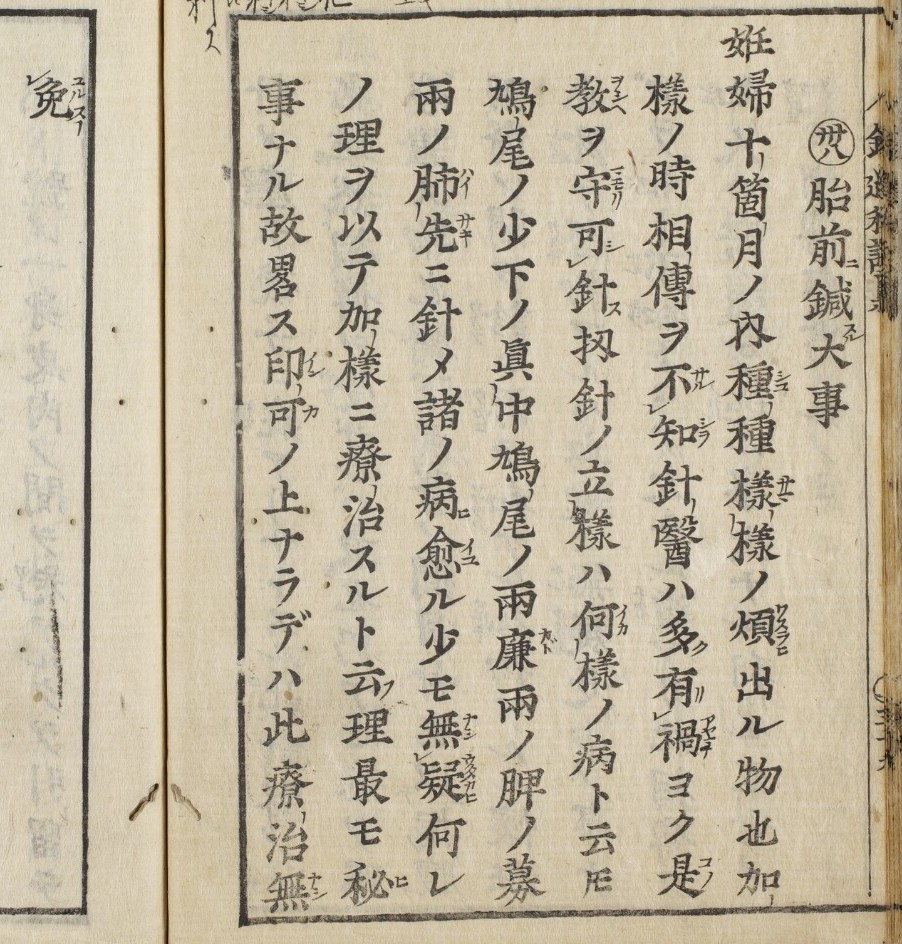 卅八 胎前ニ鍼スル大事
姙婦十箇月ノ內種種樣樣ノ煩出ル物也加
樣ノ時相傳ヲ不知針醫ハ多有禍ヨク是
教ヲ守可針扨針ノ立樣ハ何樣ノ病ト云ㇳモ
鳩尾ノ少下ノ眞中鳩尾ノ兩廉兩ノ脾ノ募
兩ノ肺先ニ針メ諸ノ病愈ル少モ無疑何レ
ノ理ヲ以テ加樣ニ療治スルト云フ理最モ秘
事ナル故畧ス印可ノ上ナラデハ此療治無
免